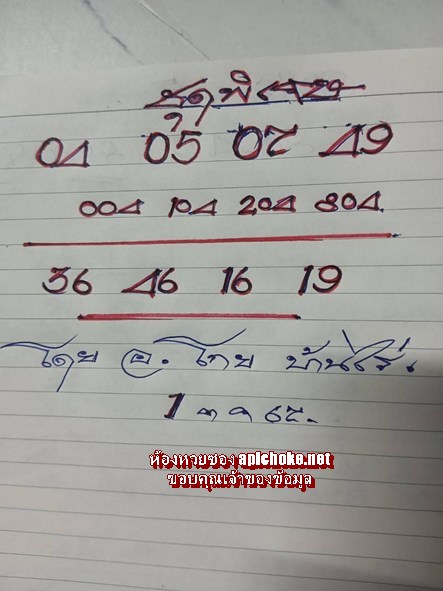 ชุดพิเศษ
04 05 07 49
004 104 204 804
36 46 16 19
โดย อ. ไทย บ้านไร่.
1 ๓ ๓ ๖๕.
ห้องหวยซอง apichoke.net
ขอบคุณเจ้าของข้อมูล